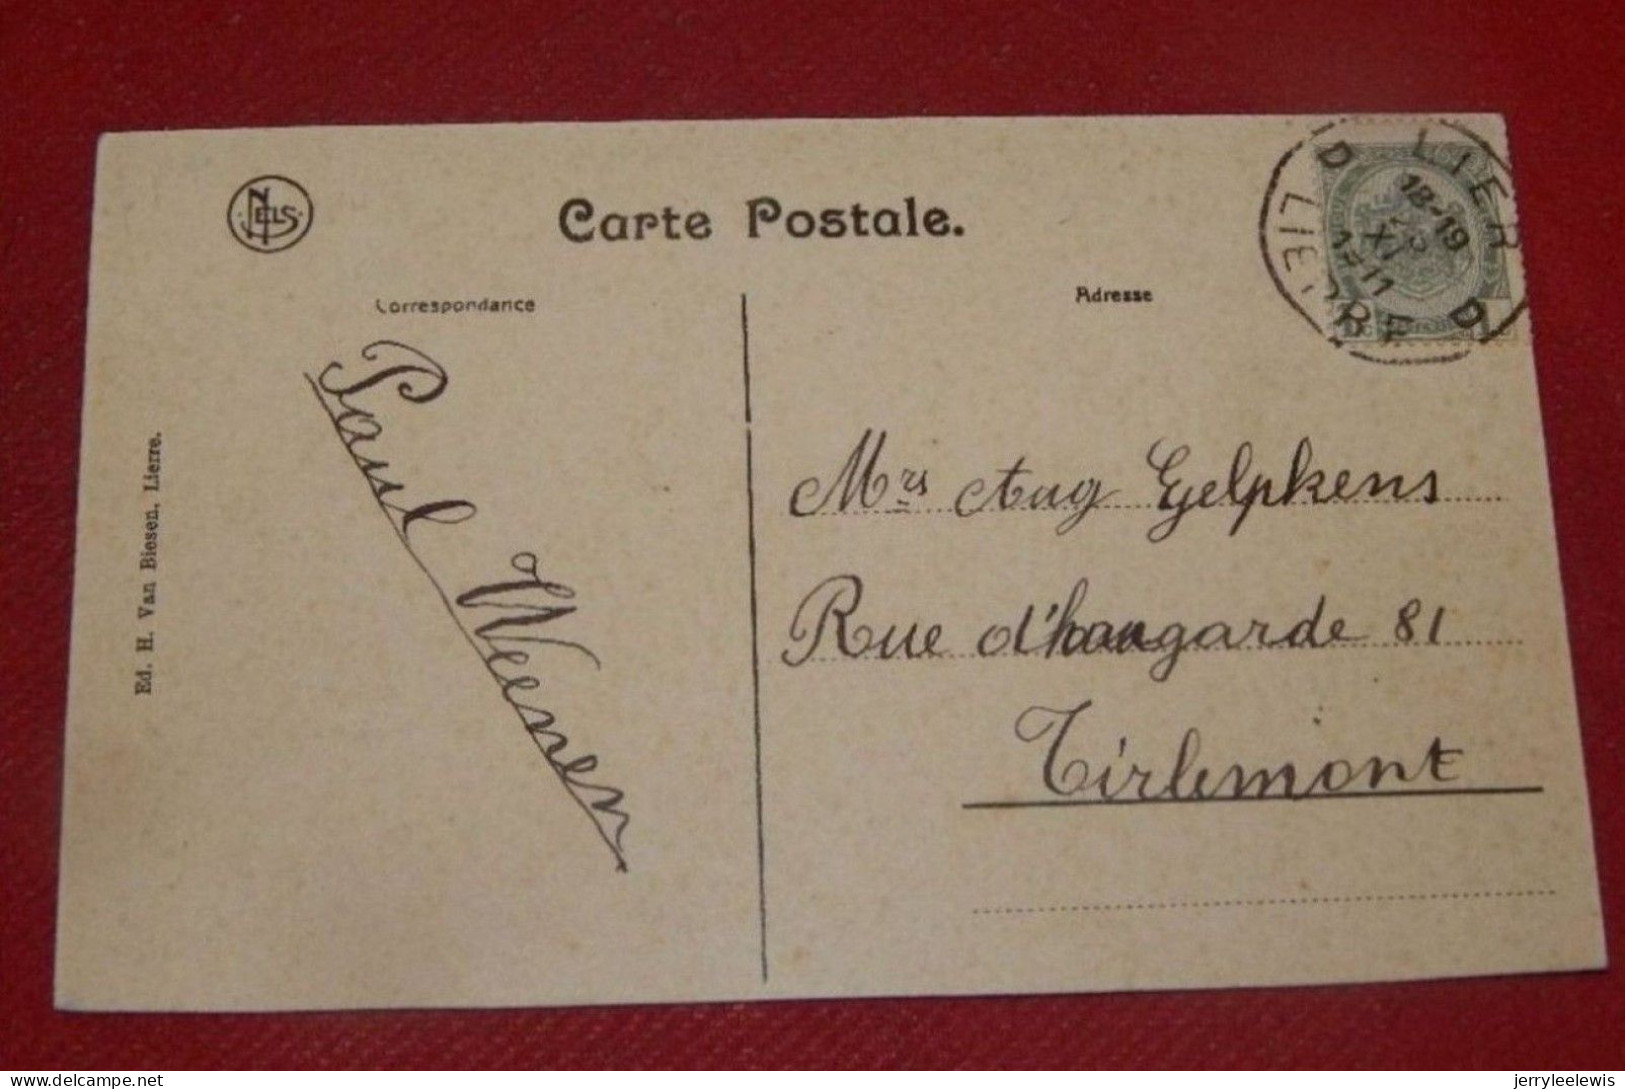 NELS
Carte Postale.
Correspondance
Adresse
LIER
D
18-19
XI
1911
D
LIERRE
Ed. H. Van Biesen, Lierre.
Paul Weenen
Mrs Aug Gelpkens
Rue d'hougarde 81
Tirlemont
delcampe.net
jerryleelewis